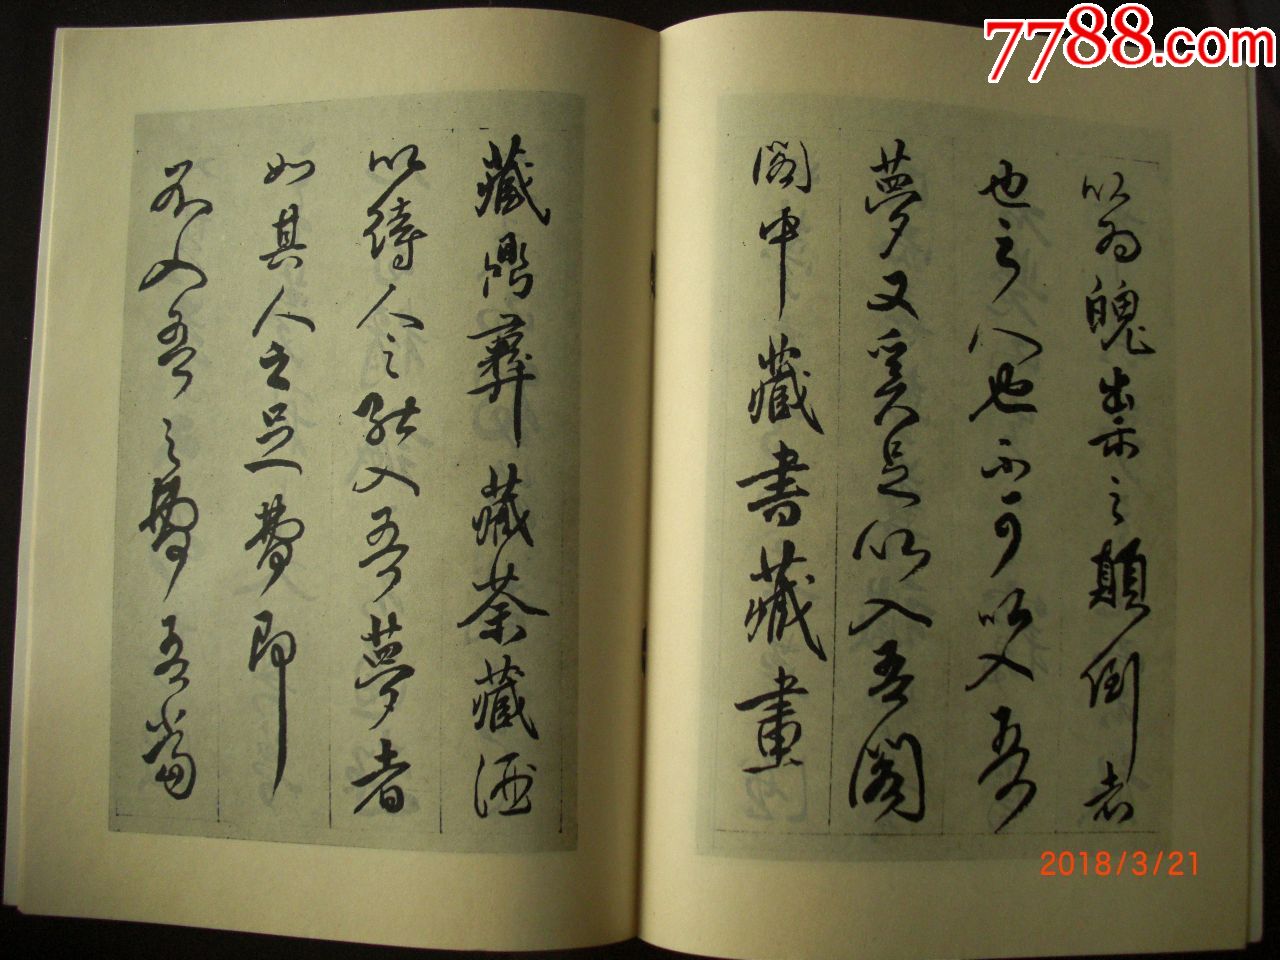 7788.com
以為魄祟之顛倒者
也之人也不可以入吾
夢又奚足以入吾閣
閣中藏書藏畫
藏鼎彝藏茶藏酒
以待人之能入吾夢者
如其人之足夢即
不入吾之夢吾當
2018/3/21